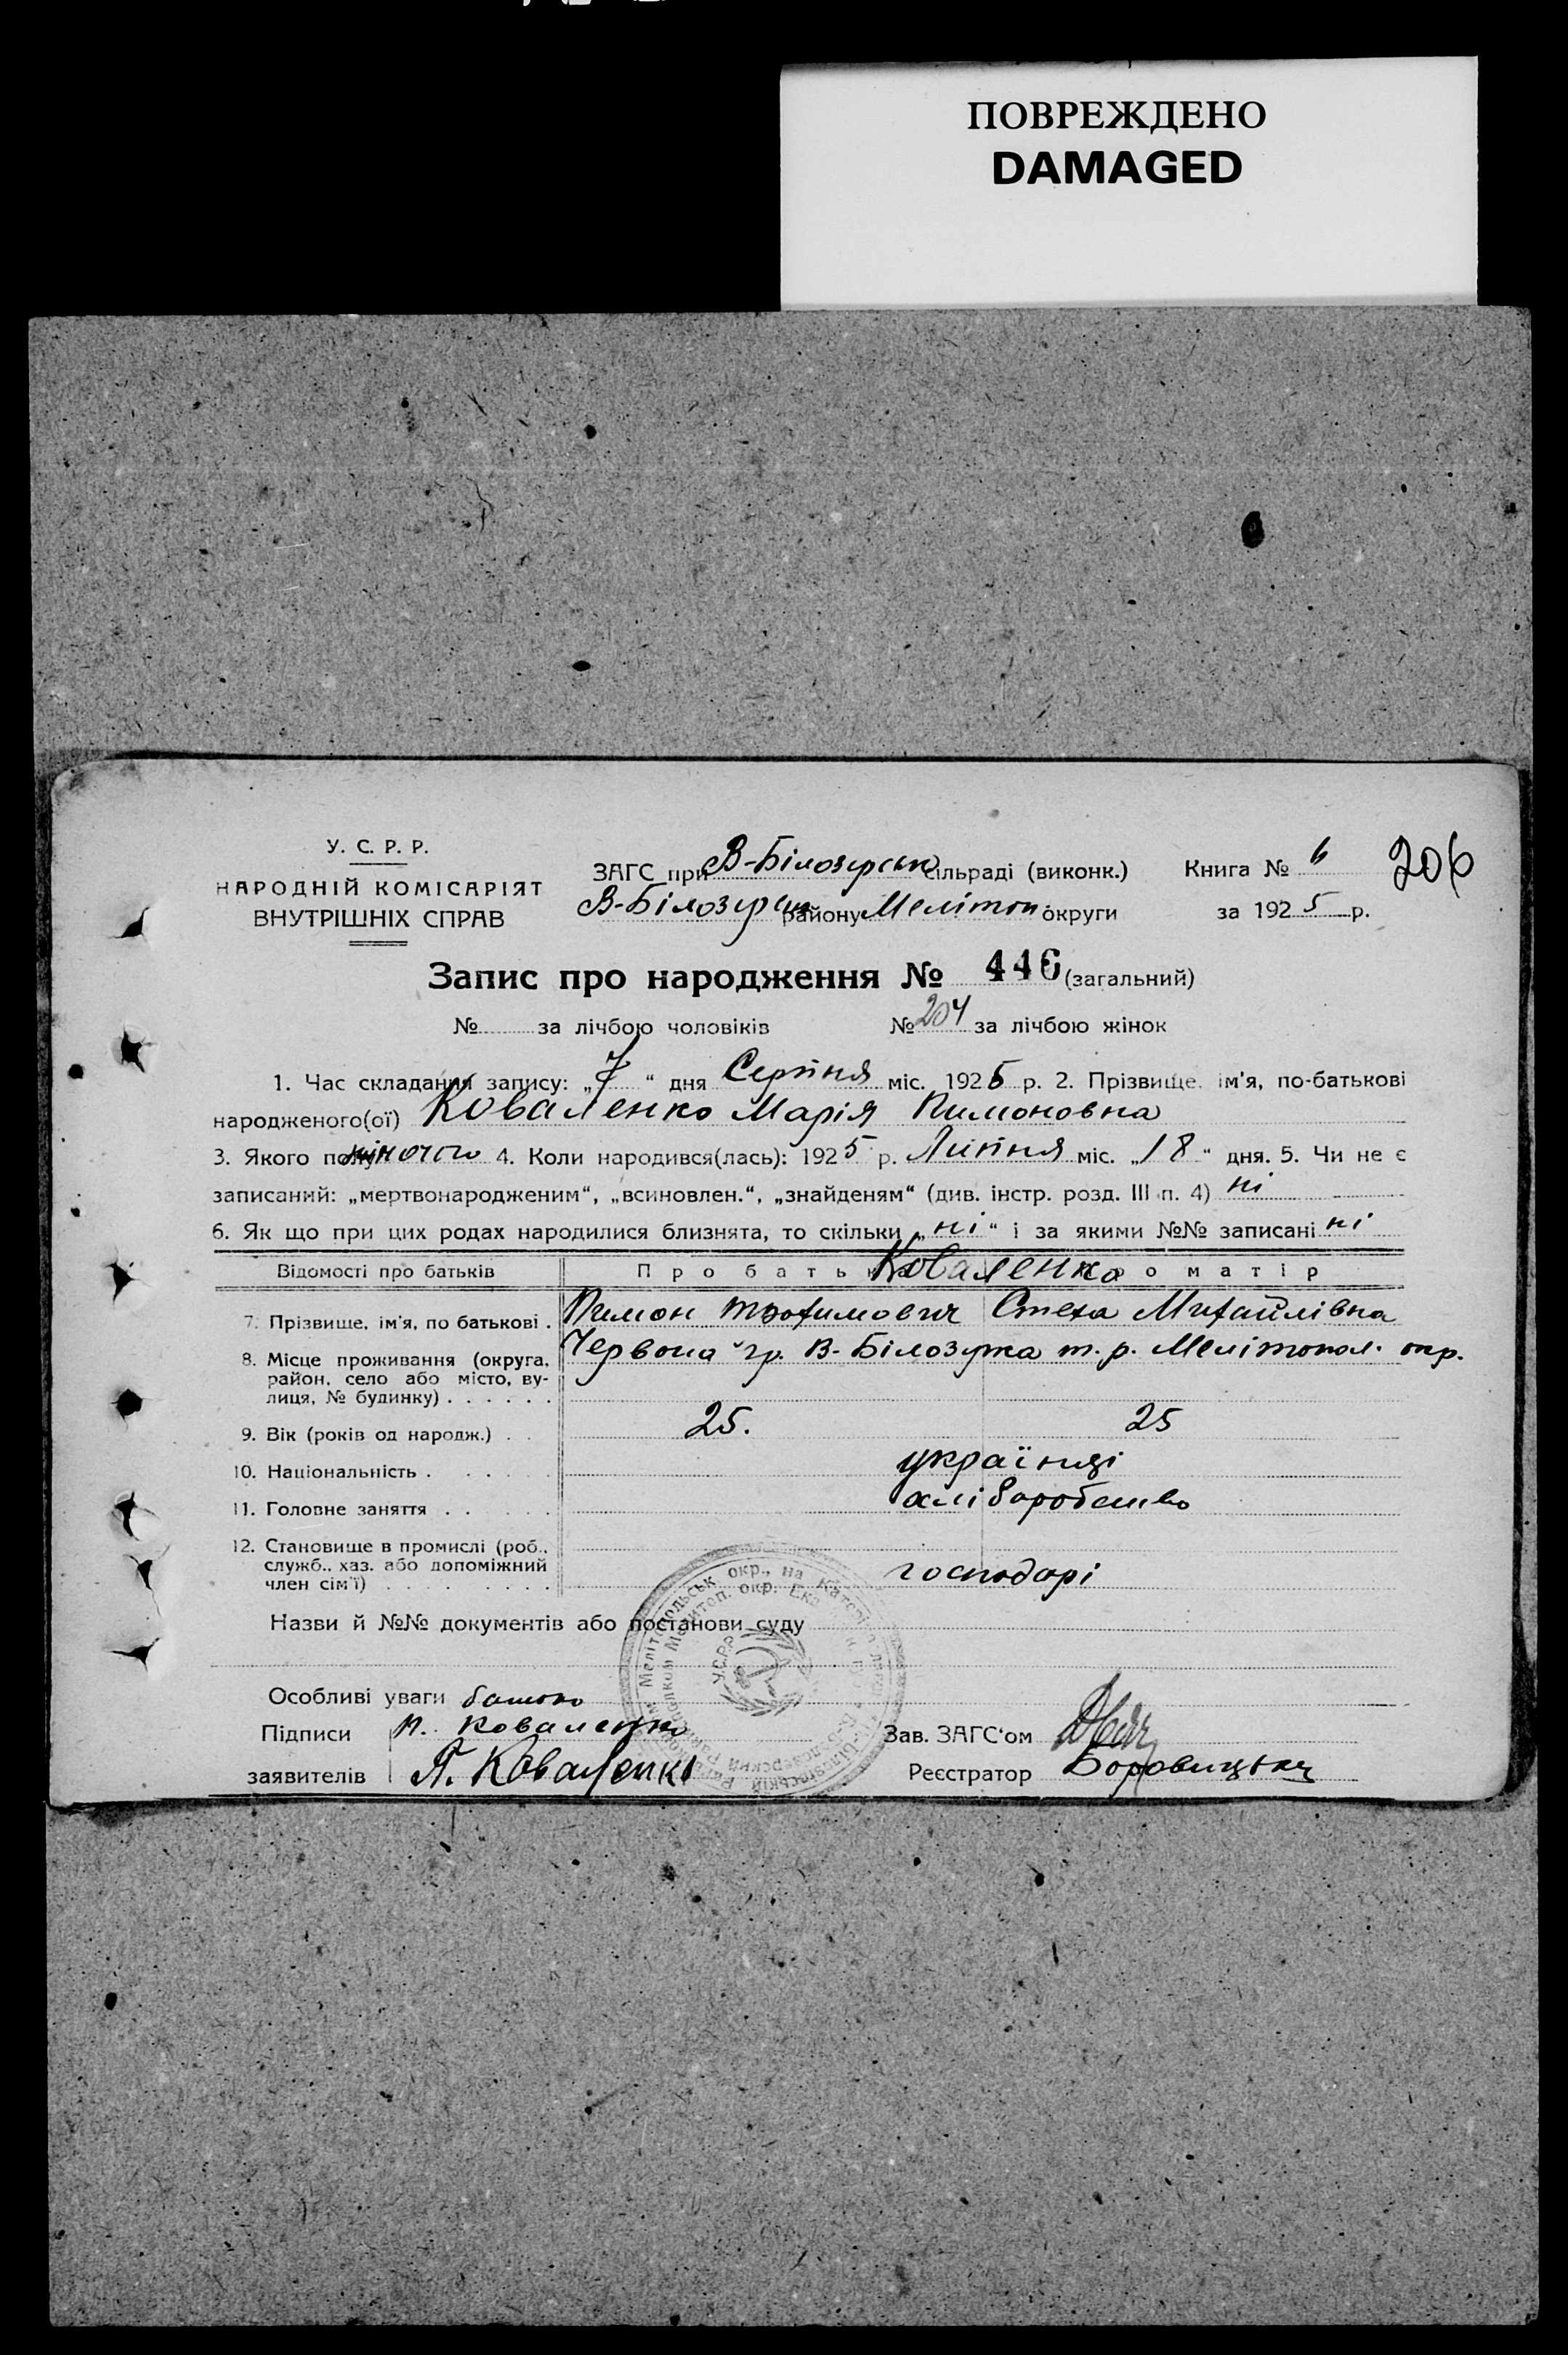 ПОВРЕЖДЕНО
DAMAGED
У. С. Р. Р.
НАРОДНІЙ КОМІСАРІЯТ
ВНУТРІШНІХ СПРАВ
ЗАГС при В-Білозерськ сільраді (виконк.)
В-Білозерськ району Мелітоп. округи
Книга № 6
за 1925 р.
206
Запис про народження № 446 (загальний)
№ за лічбою чоловіків № 204 за лічбою жінок
1. Час складання запису: „7“ дня Серпня міс. 1925 р. 2. Прізвище, ім'я, по-батькові
народженого(ої) Коваленко Марія Пимоновна
3. Якого полу жіночого 4. Коли народився(лась): 1925 р. Липня міс. „18“ дня. 5. Чи не є
записаний: „мертвонародженим“, „всиновлен.“, „знайденям“ (див. інстр. розд. III п. 4) ні
6. Як що при цих родах народилися близнята, то скільки „ні“ і за якими №№ записані ні
Відомості про батьків Про батька Про матір
Коваленко
7. Прізвище, ім'я, по батькові . Пимон Трохимович Стеха Михайлівна
8. Місце проживання (округа, район, село або місто, вулиця, № будинку) . . . . . . Червона гр. В-Білозірка т. р. Мелітопол. окр.
9. Вік (років од народж.) . . 25. 25
10. Національність . . . . . . українці
11. Головне заняття . . . . . хліборобство
12. Становище в промислі (роб., служб., хаз. або допоміжний член сім'ї) . . . . . . . . господарі
Назви й №№ документів або постанови суду
У.С.Р.Р.
Особливі уваги батько
Підписи П. Коваленко
заявителів П. Коваленко
Зав. ЗАГС'ом
Реєстратор Боровицький